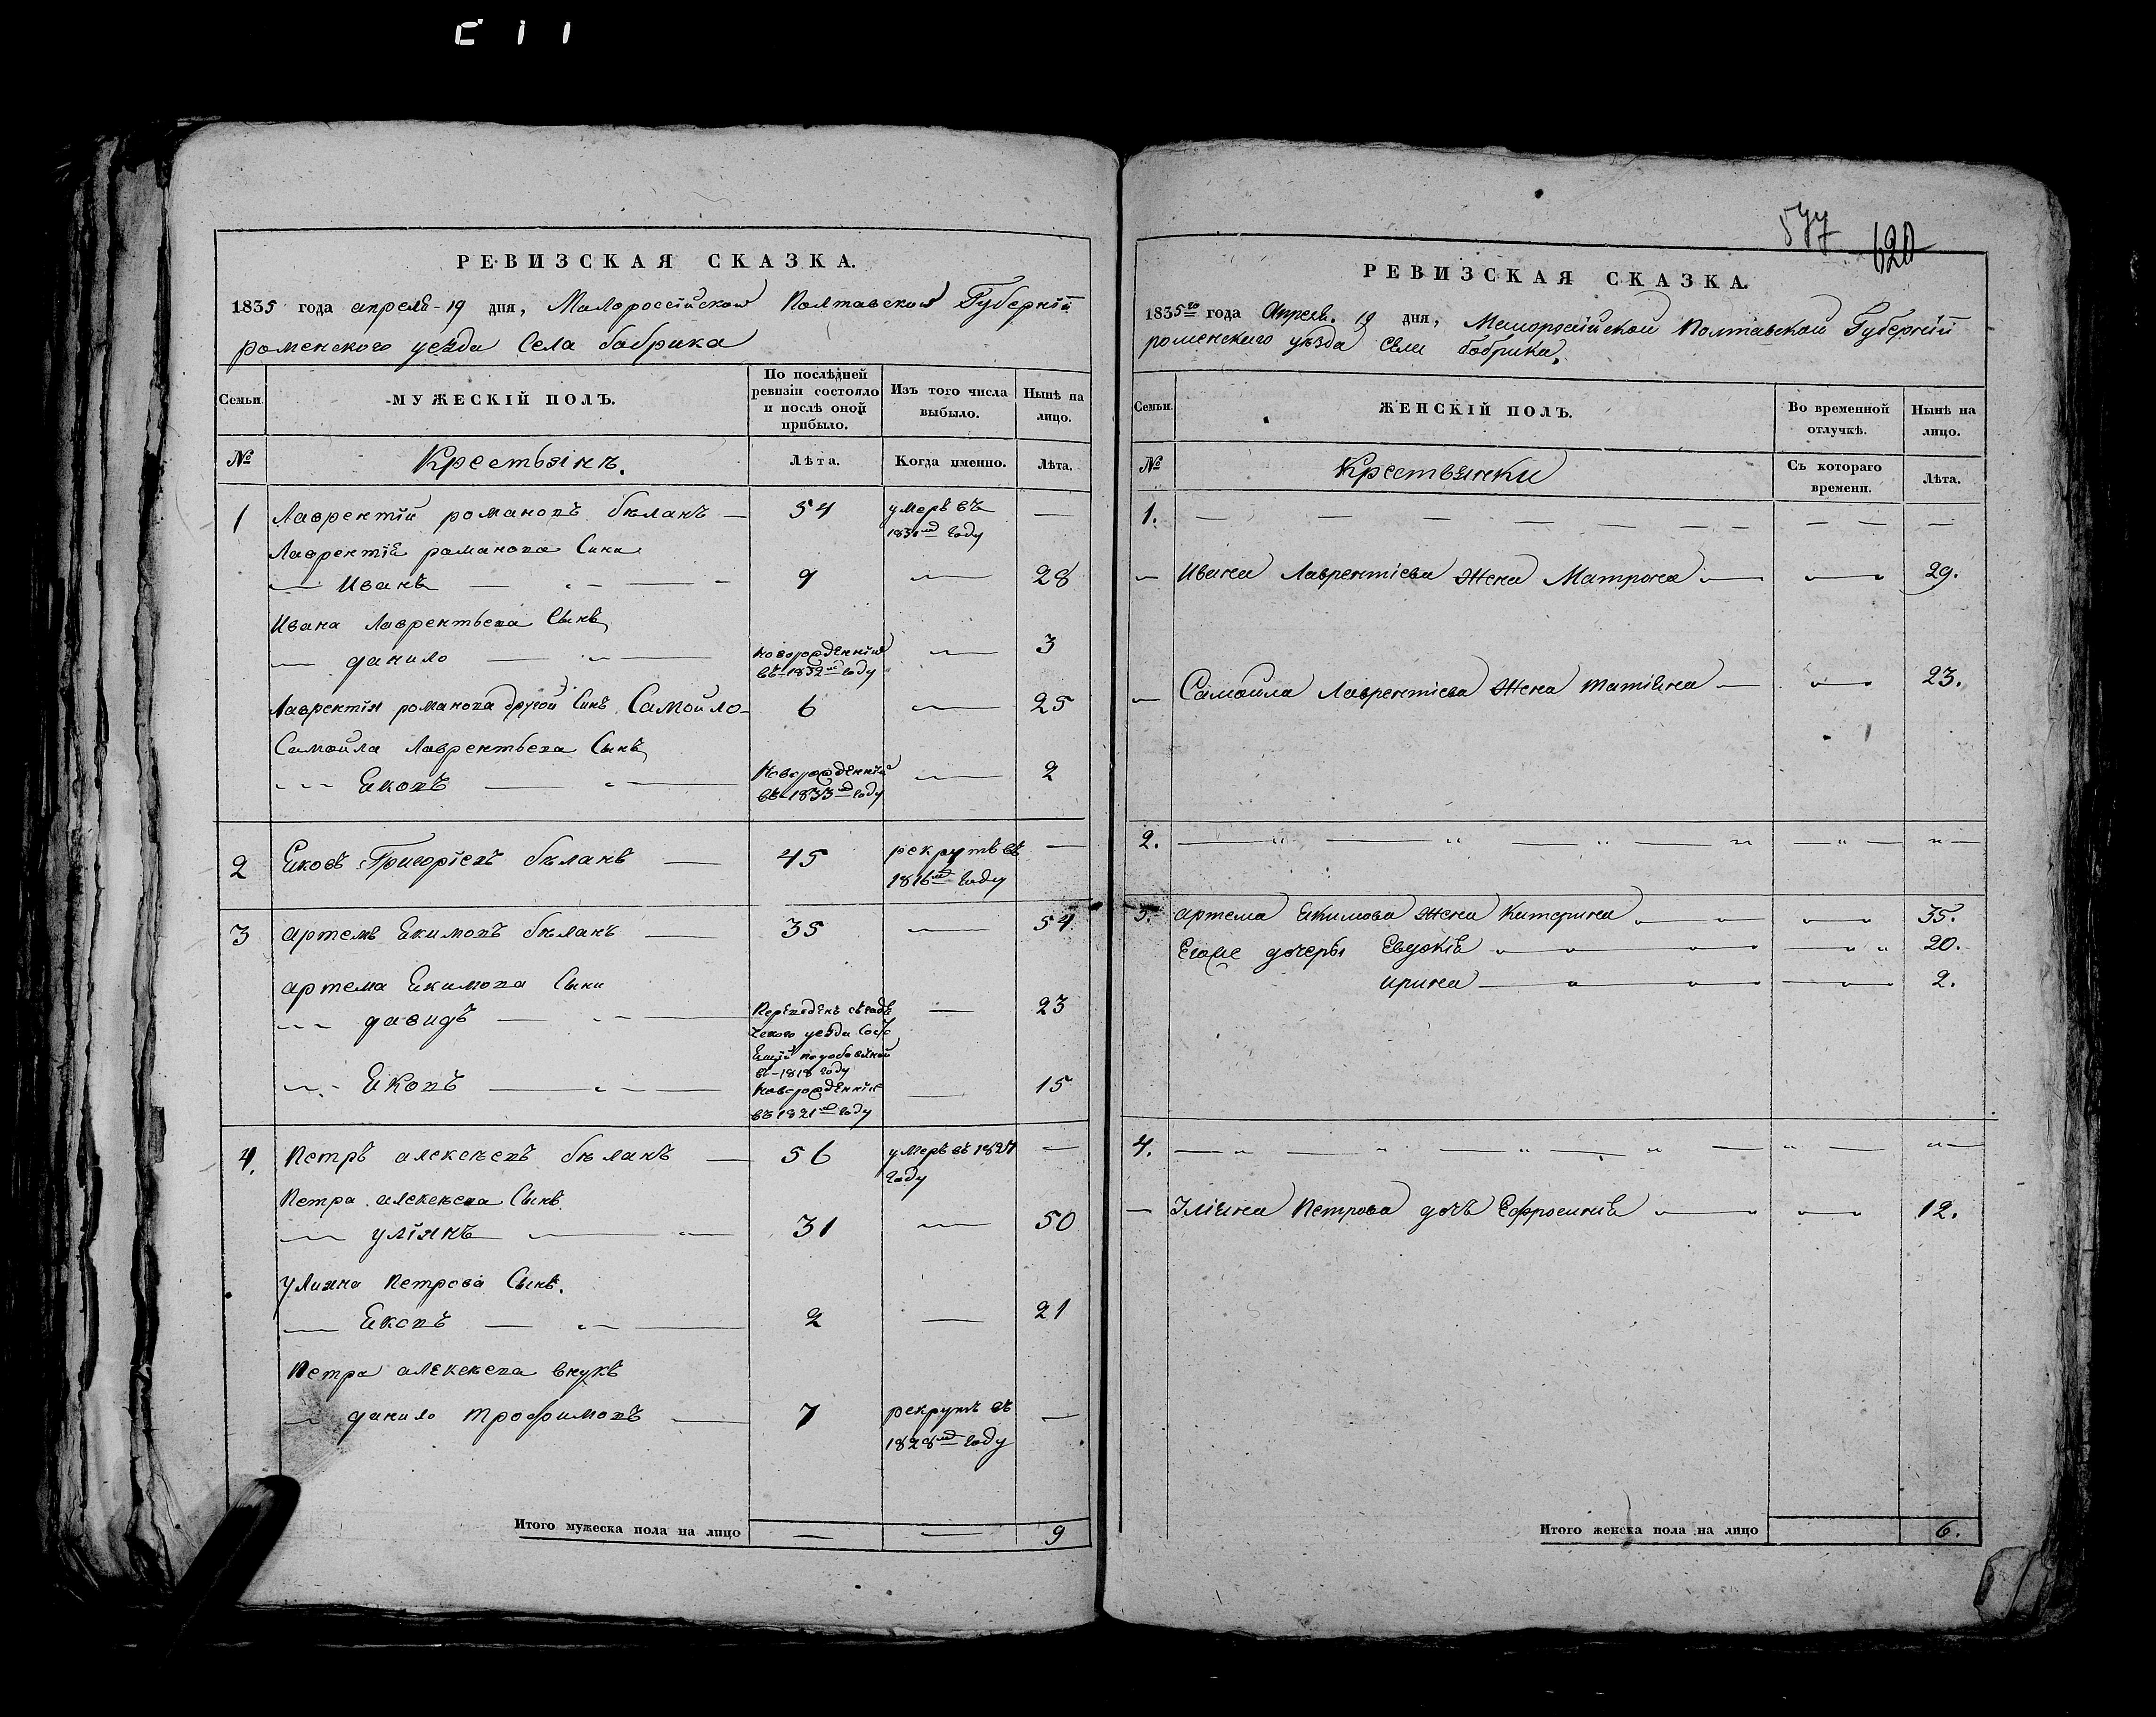 РЕВИЗСКАЯ СКАЗКА.
1835 года апреля - 19 дня, Малороссійской Полтавской Губерніи
роменского уезда Села бобрика
Семьи. МУЖЕСКІЙ ПОЛЪ. По послѣдней ревизіи состояло и послѣ оной прибыло. Изъ того числа выбыло. Нынѣ на лицо.
№ Крестьянъ. Лѣта. Когда именно. Лѣта.
1 Лаврентій романовъ бѣланъ — 54 умеръ въ —
1831мъ году
Лаврентія романова Сини
— Иванъ — 9 — 28
Ивана Лаврентьева Сынъ
— данило — новорожденній — 3
въ 1832м году
Лаврентія романова другой Синъ Самойло — 6 — 25
Самойла Лаврентьева Сынъ
Екопъ — Новорожденній — 2
въ 1833мъ году
2 Ековъ Григоріевъ бѣланъ — 45 рекрутъ въ —
1816мъ году
3 артемъ Екимовъ бѣланъ — 35 — 54
артема Екимова Сыни
давидъ — 23
Екопъ — Новорожденній — 15
въ 1821м году
4. Петръ алексѣевъ бѣланъ — 56 умеръ въ 1824 —
году
Петра алексѣева Сынъ
— уліянъ — 31 — 50
улияна Петрова Сынъ.
— Екопъ — 2 — 21
Петра алексѣева внукъ
— данило трофимовъ — 7 рекрутъ въ —
1828мъ году
Итого мужеска пола на лицо — — 9
577 620
РЕВИЗСКАЯ СКАЗКА.
1835го года Апреля. 19 дня, Малоросійской Полтавской Губерніи
роменскаго уѣзда Села бобрика.
Семьи. ЖЕНСКІЙ ПОЛЪ. Во временной отлучкѣ. Нынѣ на лицо.
№ Крестьянки Съ котораго времени. Лѣта.
1. — — — — — —
— Ивана Лаврентіева Жена Матрона — — 29.
— Самойла Лаврентіева Жена татіяна — — 23.
2. — — — — —
3. артема Екимова Жена Катерина — 35.
Егоже дочеры Евдокія — 20.
ирина — 2.
4. — — — — —
— Уліяна Петрова дочъ Ефросинія — 12.
Итого женска пола на лицо 6.